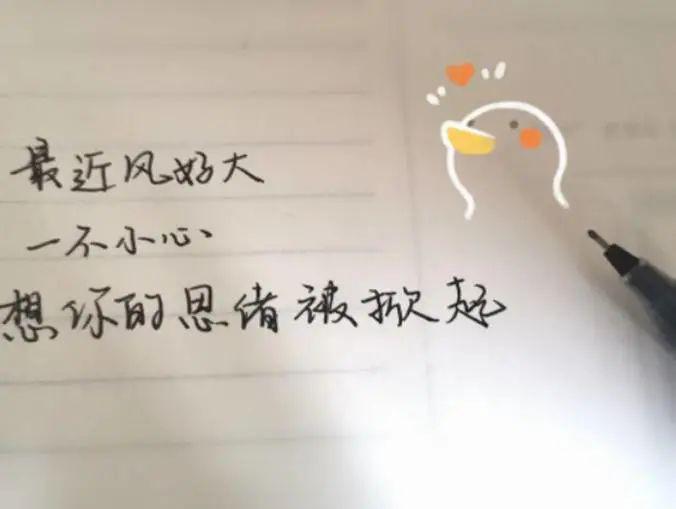 最近风好大
一不小心
想你的思绪被掀起